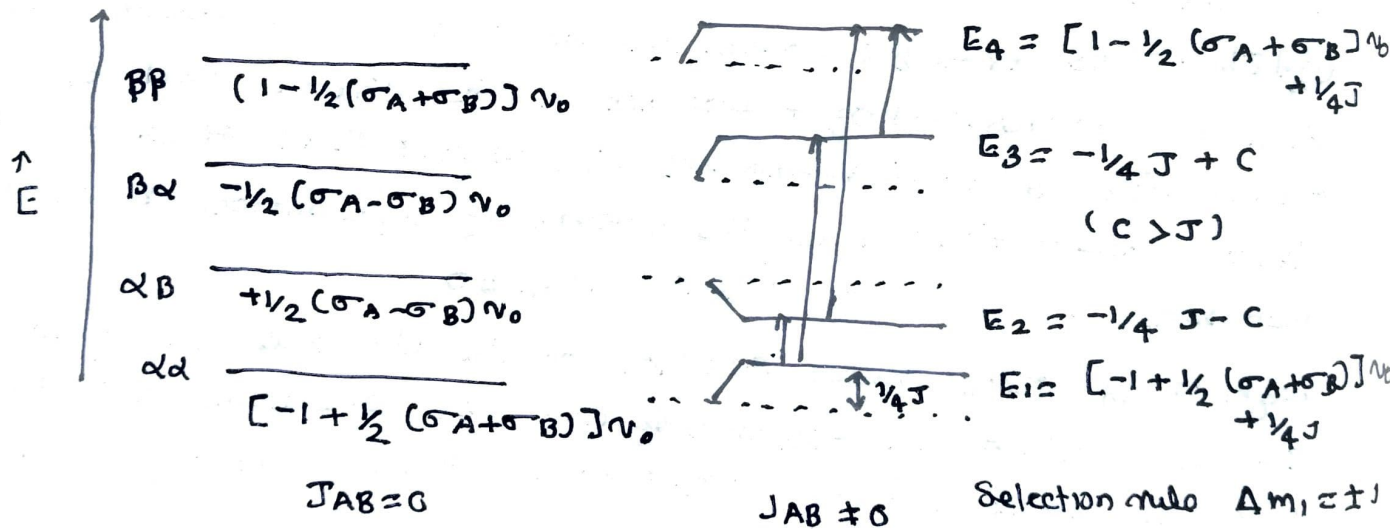 ββ
(1-½(σA+σB)] ν₀
βα
-½ (σA-σB) ν₀
↑
E
αβ
+½ (σA-σB) ν₀
αα
[-1+½ (σA+σB)] ν₀
JAB=0
¼J
JAB ≠ 0
E4 = [1-½ (σA+σB] ν₀
+¼J
E3 = -¼ J + C
(C>J)
E2 = -¼ J - C
E1= [-1+½ (σA+σB)] ν₀
+¼J
Selection rule Δm₁ = ±1